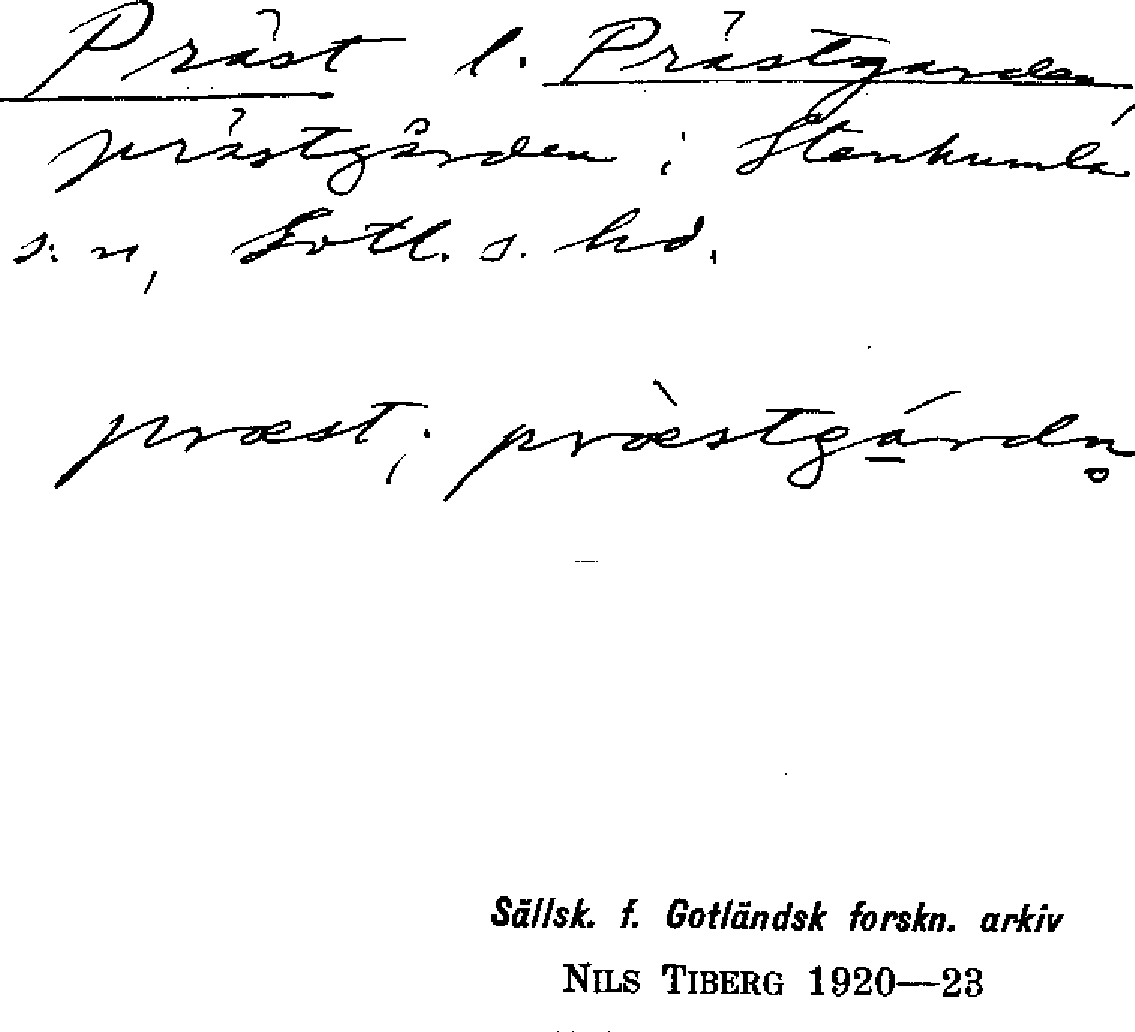 Präst l. Prästgarden
prästgården i Stenkumla
s:n, Gotl. s. hd.
præst; præ̀stgá̱rdn̥
Sällsk. f. Gotländsk forskn. arkiv
NILS TIBERG 1920—23